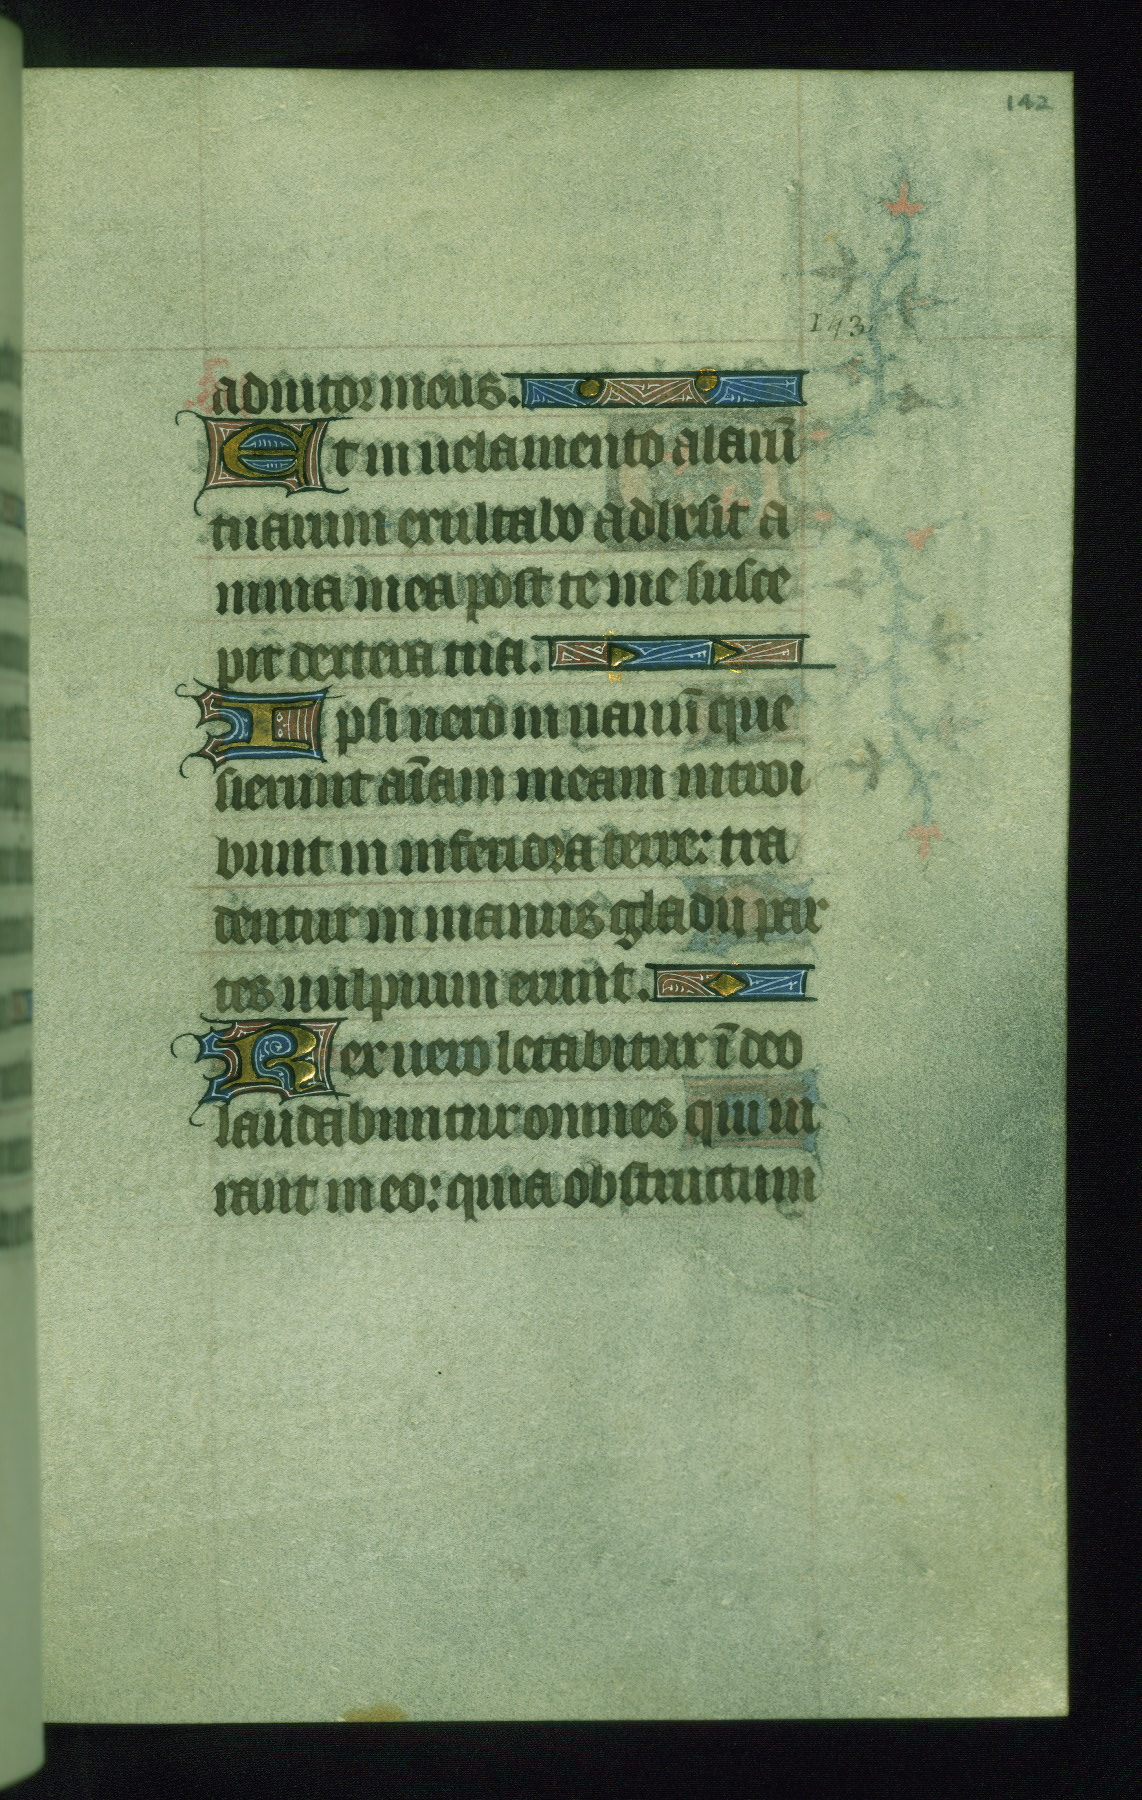 142
143
adiutor meus.
Et in uelamento alarū
tuarum exultabo adhesit a
nima mea post te me susce
pit dextera tua.
Ipsi uero in uanū que
sierunt aīam meam introi
bunt in inferiora terre: tra
dentur in manus gladii par
tes uulpium erunt.
Rex uero letabitur ī deo
laudabuntur omnes qui iu
rant in eo: quia obstructum